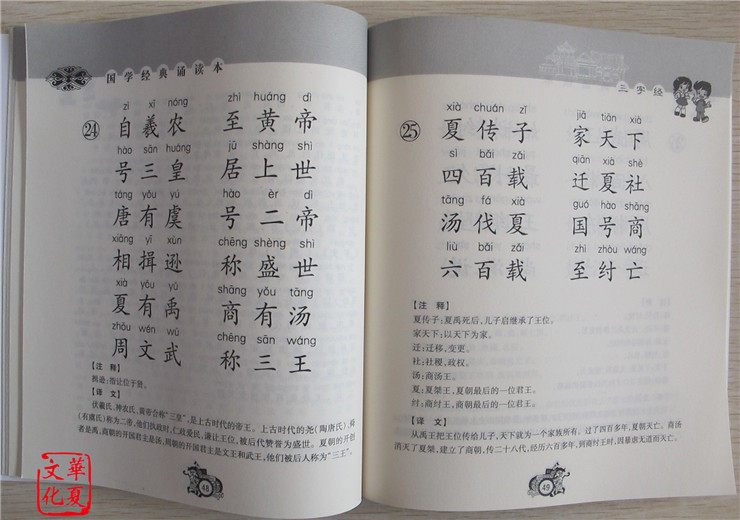 国学经典诵读本
24
zì xī nóng zhì huáng dì
自羲农 至黄帝
hào sān huáng jū shàng shì
号三皇 居上世
táng yǒu yú hào èr dì
唐有虞 号二帝
xiāng yī xùn chēng shèng shì
相揖逊 称盛世
xià yǒu yǔ shāng yǒu tāng
夏有禹 商有汤
zhōu wén wǔ chēng sān wáng
周文武 称三王
【注 释】
揖逊:指让位于贤。
【译 文】
伏羲氏、神农氏、黄帝合称“三皇”,是上古时代的帝王。上古时代的尧(陶唐氏)、舜
(有虞氏)称为二帝,他们执政时,仁政爱民,谦让王位,被后代赞誉为盛世。夏朝的开创
者是禹,商朝的开国君主是汤,周朝的开国君主是文王和武王,他们被后人称为“三王”。
48
三字经
25
xià chuán zǐ jiā tiān xià
夏传子 家天下
sì bǎi zǎi qiān xià shè
四百载 迁夏社
tāng fá xià guó hào shāng
汤伐夏 国号商
liù bǎi zǎi zhì zhòu wáng
六百载 至纣亡
【注 释】
夏传子:夏禹死后,儿子启继承了王位。
家天下:以天下为家。
迁:迁移,变更。
社:社稷,政权。
汤:商汤王。
夏:夏桀王,夏朝最后的一位君王。
纣:商纣王,商朝最后的一位君王。
【译 文】
从禹王把王位传给儿子,天下就为一个家族所有。过了四百多年,夏朝灭亡。商汤
消灭了夏桀,建立了商朝,传二十八代,经历六百多年,到商纣王时,因暴虐无道而灭亡。
49
華夏
文化